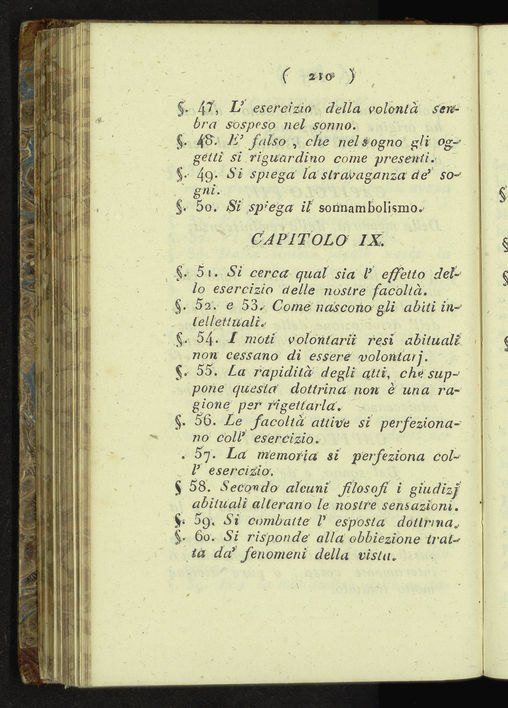 ( 210 )
§. 47, L' esercizio della volontà sem-
bra sospeso nel sonno.
§. 48. E' falso, che nel sogno gli og-
getti si riguardino come presenti.
§. 49. Si spiega la stravaganza de' so-
gni.
§. 50. Si spiega il sonnambolismo.
CAPITOLO IX.
§. 51. Si cerca qual sia l' effetto del-
lo esercizio delle nostre facoltà.
§. 52. e 53. Come nascono gli abiti in-
tellettuali.
§. 54. I moti volontarii resi abituali
non cessano di essere volontarj.
§. 55. La rapidità degli atti, che sup-
pone questa dottrina non è una ra-
gione per rigettarla.
§. 56. Le facoltà attive si perfeziona-
no coll' esercizio.
. 57. La memoria si perfeziona col-
l' esercizio.
§ 58. Secondo alcuni filosofi i giudizj
abituali alterano le nostre sensazioni.
§. 59. Si combatte l' esposta dottrina.
§. 60. Si risponde alla obbiezione trat-
ta da' fenomeni della vista.